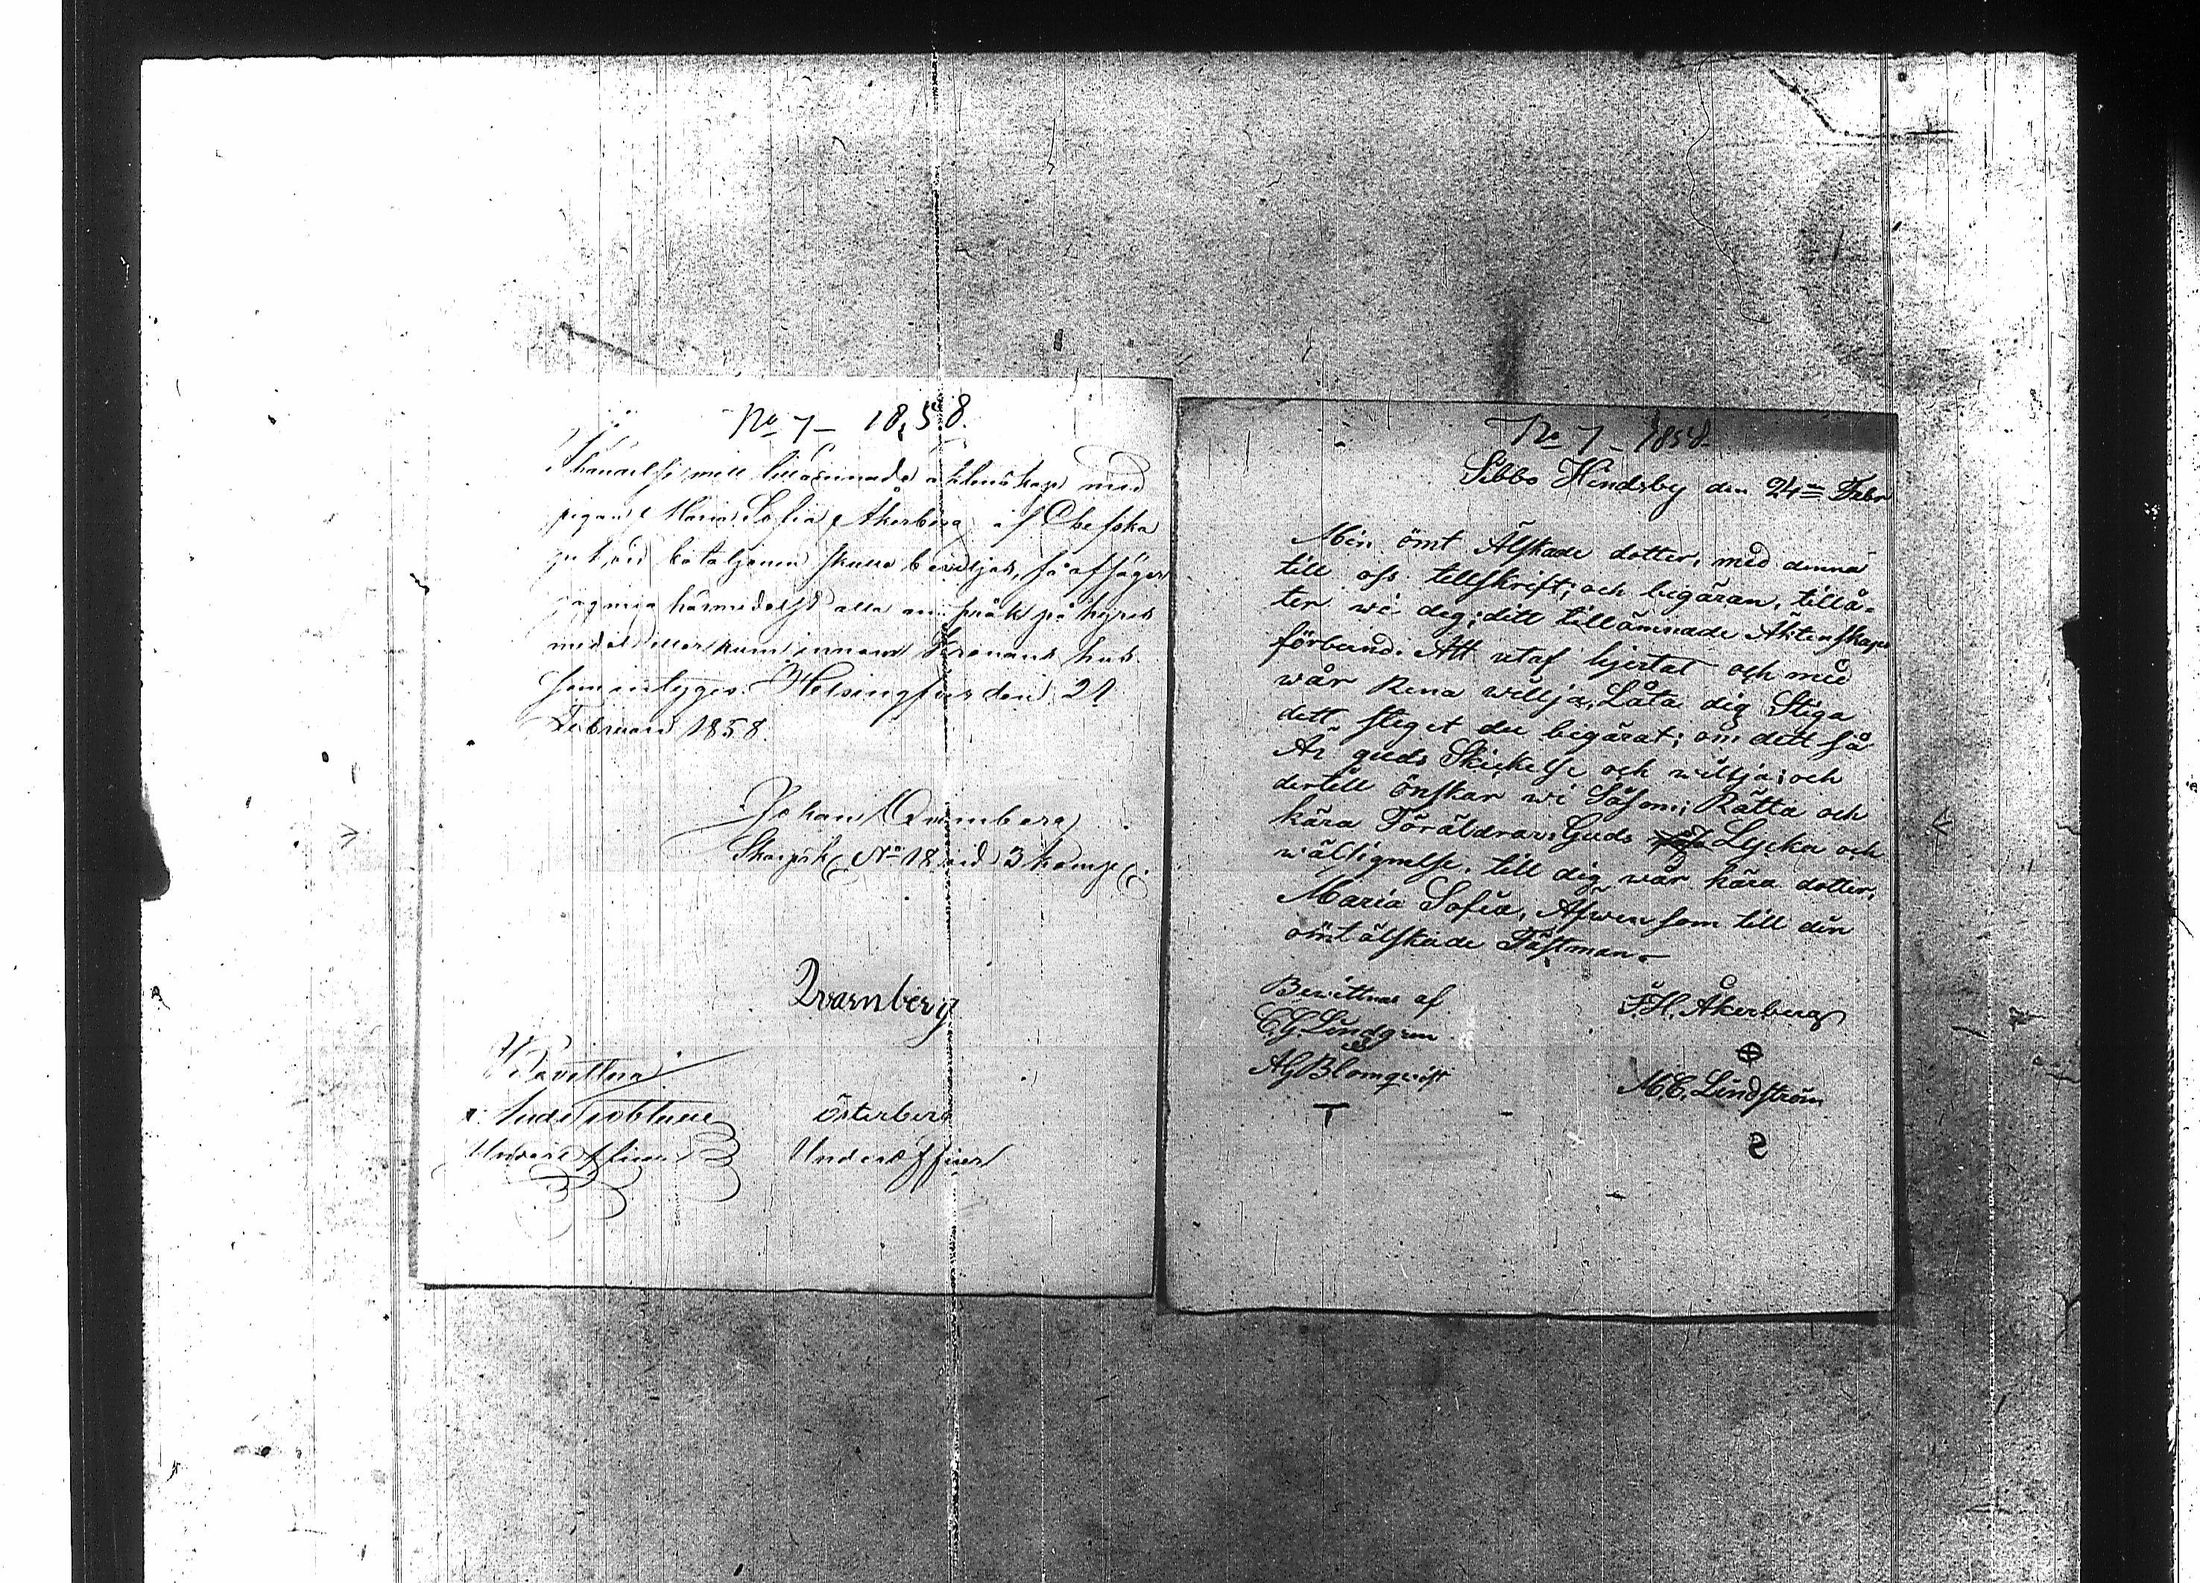 No 7 – 1858.
mitt tillämnade äktenskap med
pigan Maria Sofia Åkerberg af Chefska
vid bataljonen skulle beviljas, så afsäger
jag mig härmedelst alla anspråk på hyres
medel eller rum innom Kronans hus
Helsingfors den 21
Februari 1858.
Johan Qvarnberg
Skarpsk. No 18 vid 3 komp.
Qvarnberg
Bevittna
Österberg
Underofficer Underofficer
No 7 – 1858.
Sibbo Hindsby den 24de Febr
Min ömt Älskade dotter, med denna
till oss tillskrift; och begäran, tillå-
ter wi dig; ditt tillämnade Äktenskaps
förbund. Att utaf hjertat och med
wår Rena willja, Låta dig Stiga
dett steget du begärat; om dett så
Är guds Skickelse och willja; och
dertill önskar wi Såsom; Rätta och
kära Föräldrar: Guds Lycka och
wälsignelse, till dig wår kära dotter,
Maria Sofia, Äfwen som till din
ömt älskade Fästman.
Bewittnas af
C. G. Lindgren
F. H. Åkerberg
AG Blomqvist
M. C. Lindström